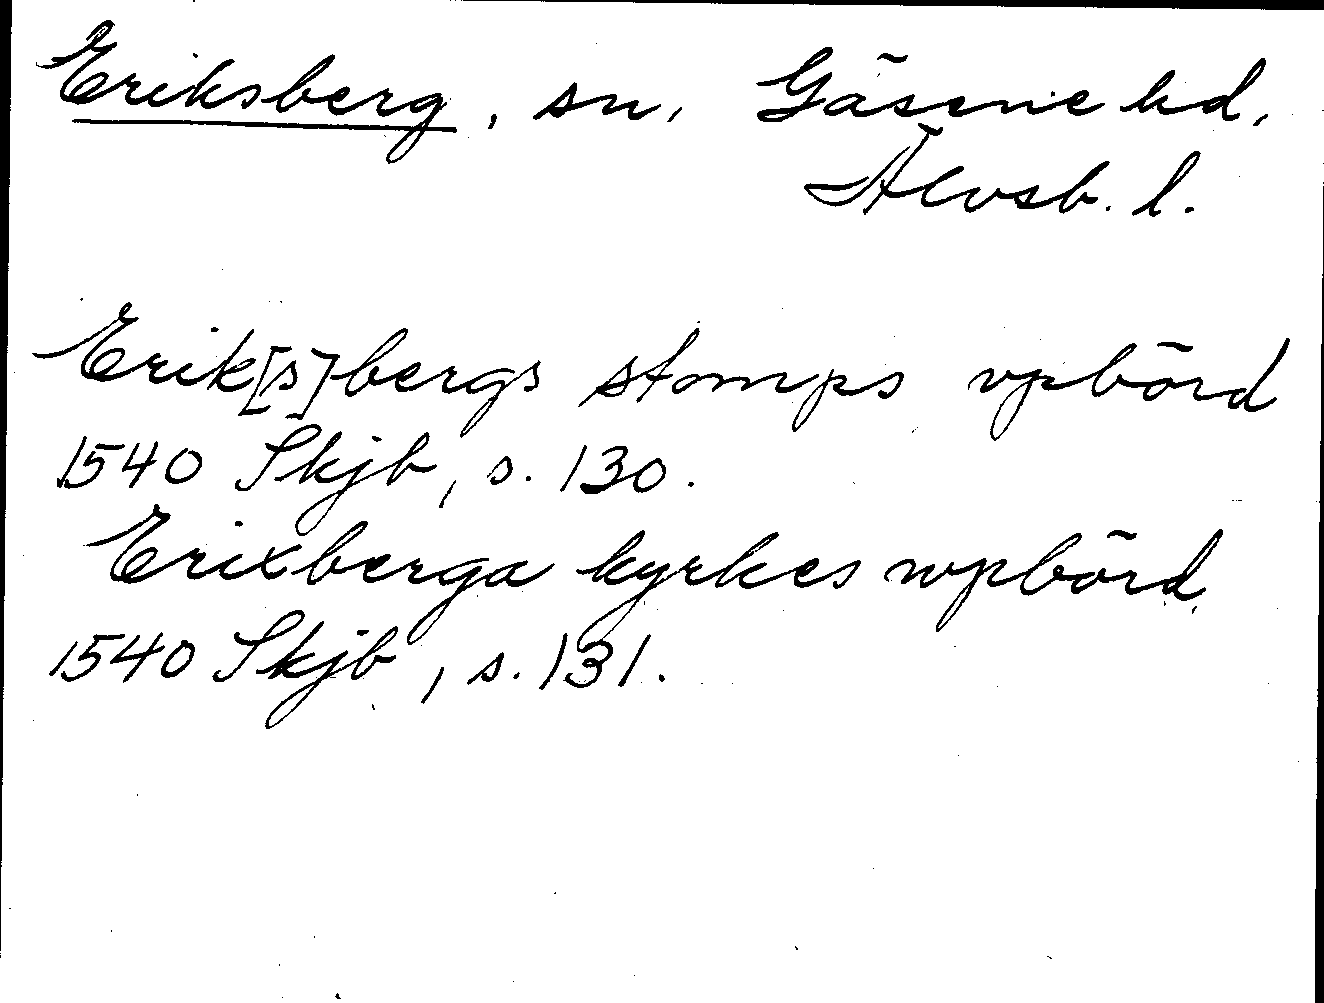 Eriksberg, sn, Gäsene hd,
Älvsb. l.
Erik[s]bergs stomps vpbörd
1540 Skjb, s. 130.
Erixberga kyrkes wpbörd
1540 Skjb, s. 131.